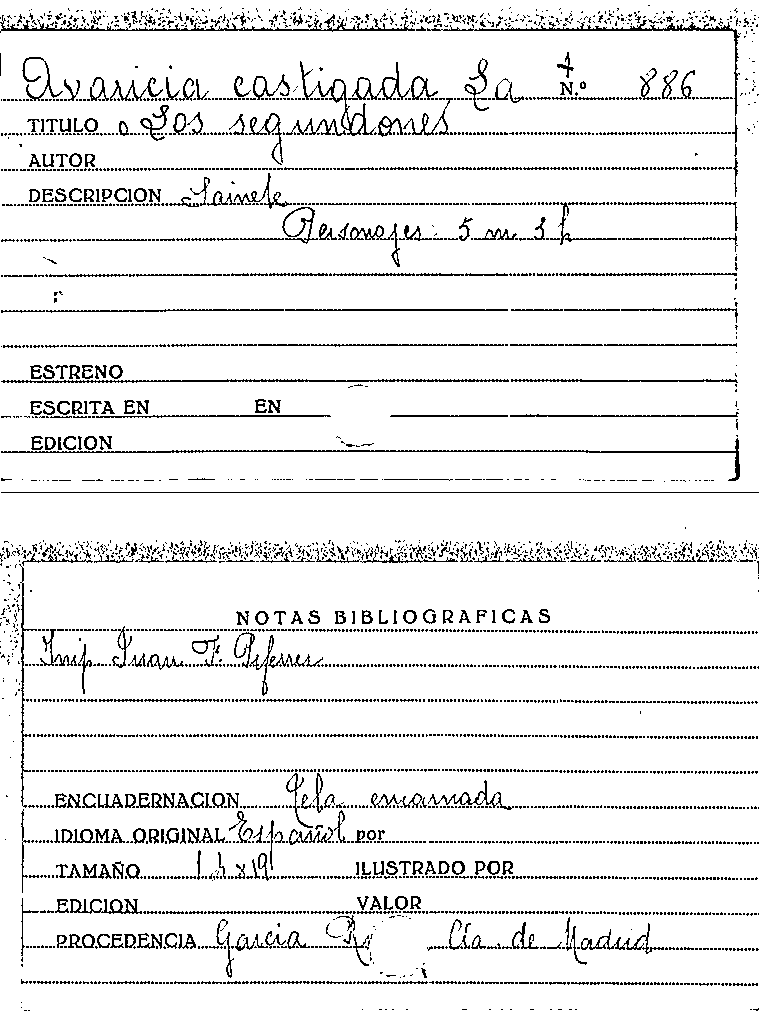 Avaricia castigada La N.º 886
TITULO o Los segundones
AUTOR
DESCRIPCION Sainete
Personajes: 5 m 3 h
ESTRENO
ESCRITA EN EN
EDICION
NOTAS BIBLIOGRAFICAS
Imp Juan F. Piferrer
ENCUADERNACION Tela encarnada
IDIOMA ORIGINAL Español por
TAMAÑO x 19 ILUSTRADO POR
EDICION VALOR
PROCEDENCIA Garcia Cía. de Madrid